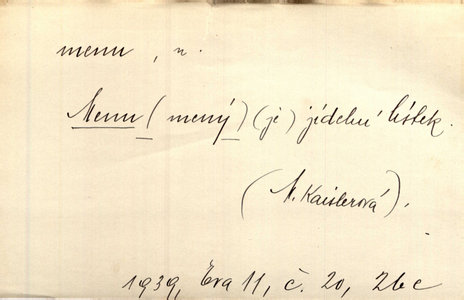 menu, n.
Menu (mený) (je) jídelní lístek.
(N. Kaislerová).
1939, Eva 11, č. 20, 26c